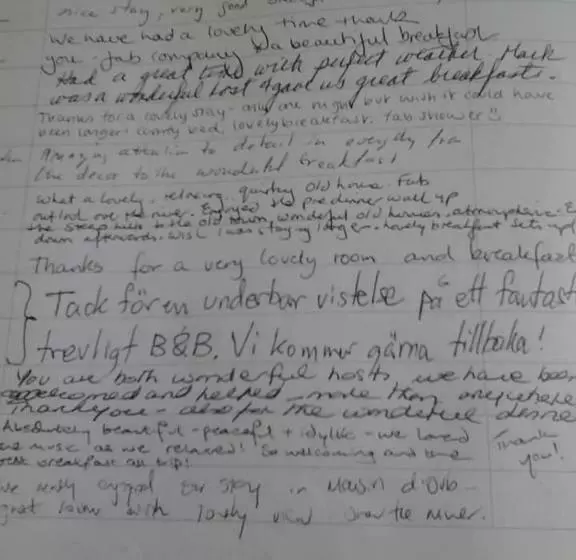 nice stay, very good
We have had a lovely time thanks
you - fab company & a beautiful breakfast
Had a great time with perfect weather. Mark
was a wonderful host & gave us great breakfasts.
Thanks for a lovely stay - only one night but wish it could have
been longer! comfy bed, lovely breakfast. fab shower
Amazing attention to detail in everything from
the decor to the wonderful breakfast
What a lovely, relaxing, quirky old house. Fab
outlook over the river. Enjoyed the pre dinner walk up
the steep hill to the old town, wonderful old atmosphere.
down afterwards. Wish I was staying longer - lovely breakfast sets up
Thanks for a very lovely room and breakfast
Tack för en underbar vistelse på ett fantast
trevligt B&B. Vi kommer gärna tillbaka!
You are both wonderful hosts we have been
welcomed and helped more than anywhere
Thankyou - also for the wonderful dinner
Absolutely beautiful - peaceful + idyllic - we loved
music as we relaxed! So welcoming and
best breakfast on trip! Thank you!
We really enjoyed our stay in
great room with lovely view over the river.